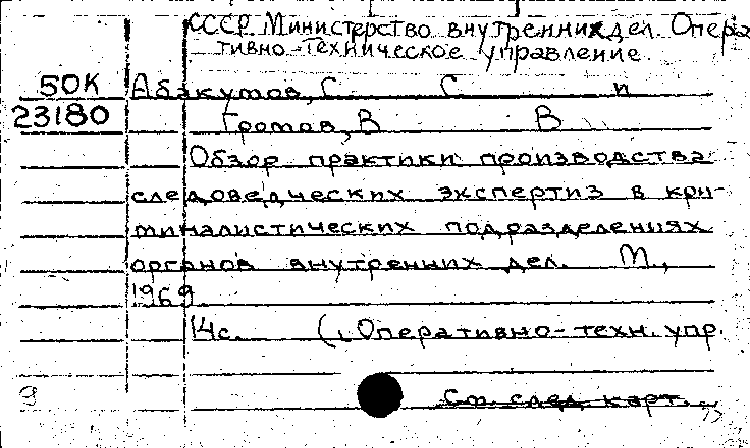 СССР. Министерство внутренних дел. Опера
тивно-техническое управление.
50К Абакумов, С С и
23180 Громов, В В
Обзор практики производства
следоведческих экспертиз в кри-
миналистических подразделениях
органов внутренних дел. М.,
1969
14с. (, Оперативно-техн. упр.
9 См. след. карт.